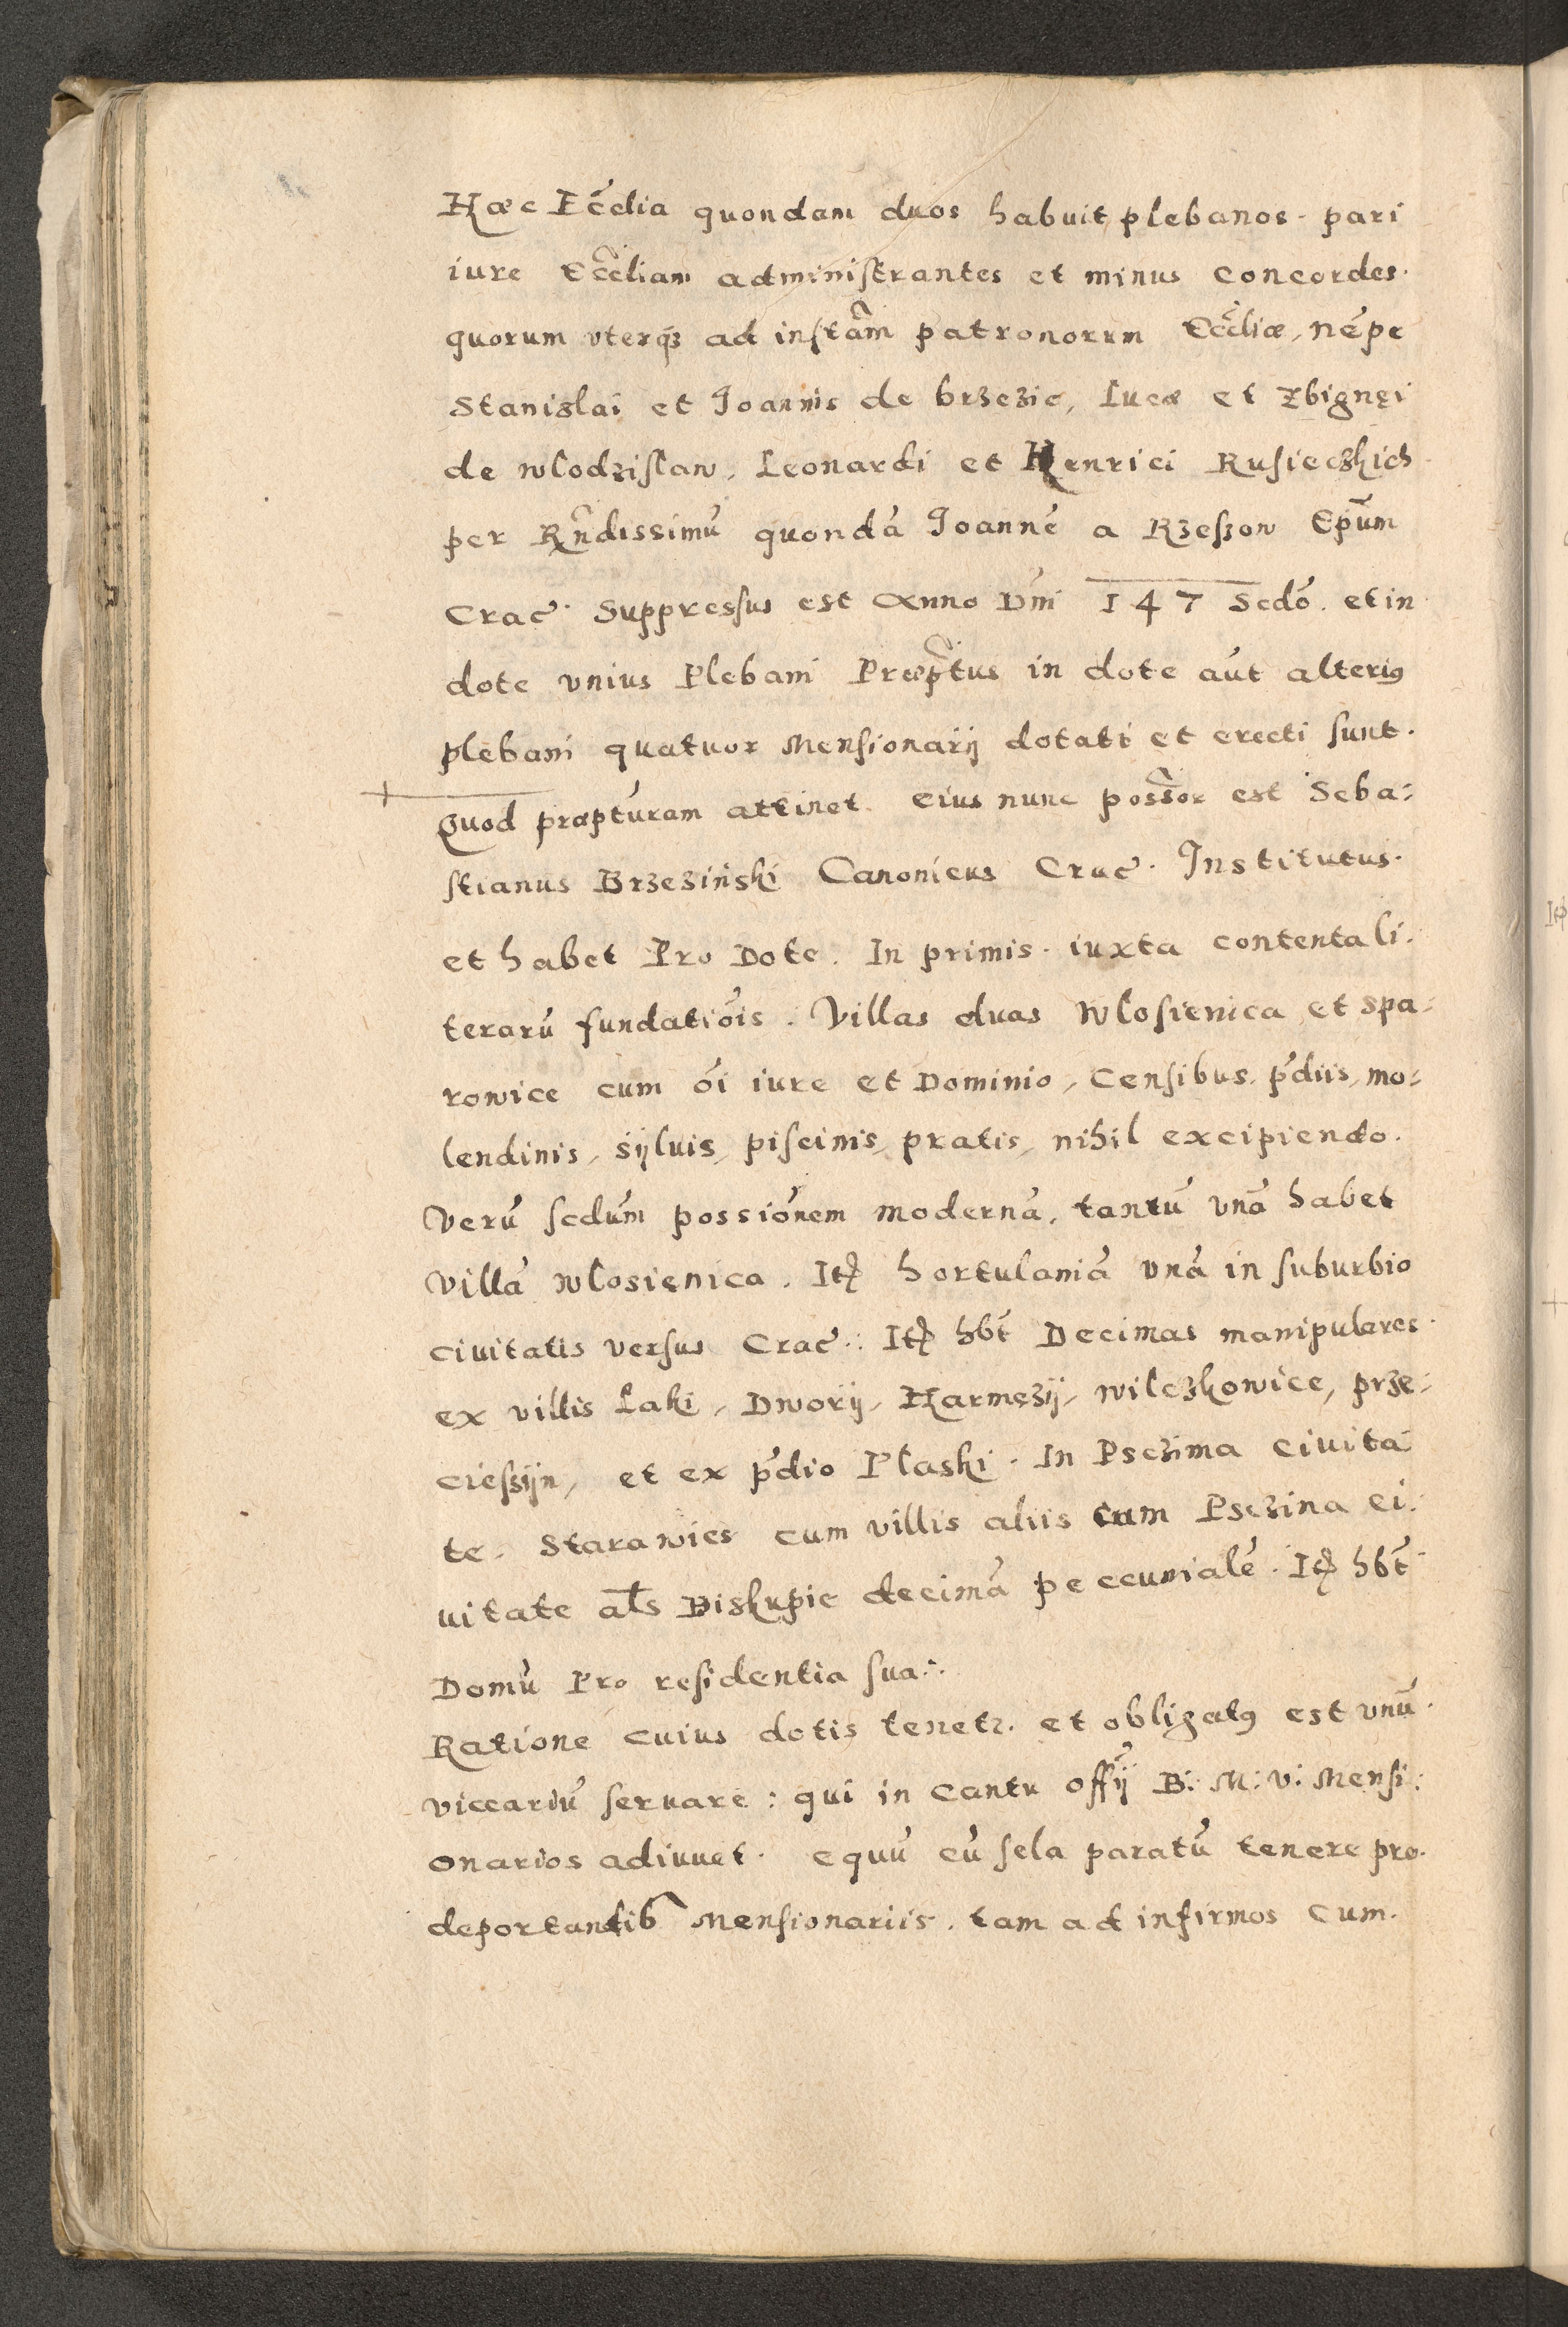 Hæc Eccłia quondam duos habuit plebanos. pari
iure Eccłiam administrantes et minus concordes.
quorum vterqȝ ad instãm patronorum Eccłiæ, nẽpe
Stanislai et Joannis de brzezie, Lucæ et Zbignęi
de wlodzislaw, Leonardi et Henrici Rusieczkich
per Rñdissimũ quondã Joannẽ a Rzeszow Epũm
Crac̃. Suppressus est Anno Dñi 147 Scdõ. et in
dote vnius Plebani Præp̃tus in dote aũt alteri9
plebani quatuor Mensionarij dotati et erecti sunt.
Quod præpturam attinet. Eius nunc possõr est Seba:
stianus Brzeziński Canonicus Crac̃. Institutus.
et habet Pro Dote. In primis. iuxta contenta li:
terarũ fundatiõis. Villas duas Wlosienica et Spa:
rowice cum õi iure et Dominio, Censibus. p̃diis, mo:
lendinis, sÿluis, piscinis, pratis, nihil excipiendo.
Verũ scdũm possiõnem modernã, tantũ vnã habet
Villã Wlosienica. Itẽ hortulaniã vnã in suburbio
ciuitatis versus Crac̃.: Itẽ hb̃t Decimas manipulares.
ex villis Laki, Dworÿ, Harmęzÿ, wilczkowice, prze:
ciesszÿn, et ex p̃dio Plaski. In Psczina Ciuita
te. Starawies cum villis aliis cum Psczina Ci:
uitate als Biskupie decimã peccunialẽ. Itẽ hb̃t
Domũ Pro residentia sua:.
Ratione cuius dotis tenetr. et obligat9 est vnũ.
viccariũ seruare: qui in cantu Offÿ B: M: V: Mensi:
onarios adiuuet. equũ cũ sela paratũ tenere pro.
deportantib Mensionariis. tam ad infirmos cum.